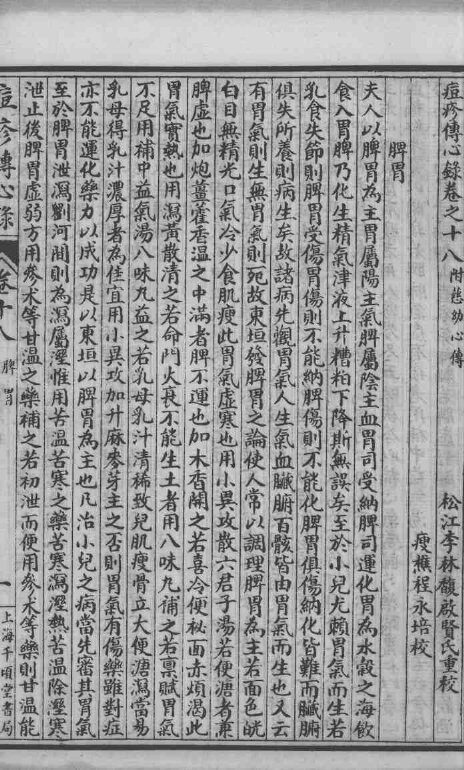 痘疹傳心錄卷之十八附慈幼心傳
松江李林馥啟賢氏重校
瘦樵程永培校
脾胃
夫人以脾胃為主胃屬陽主氣脾屬陰主血胃司受納脾司運化胃為水穀之海飲
食入胃脾乃化生精氣津液上升糟粕下降斯無誤矣至於小兒尤賴胃氣而生若
乳食失節則脾胃受傷胃傷則不能納脾傷則不能化脾胃俱傷納化皆難而臟腑
俱失所養則病生矣故諸病先觀胃氣人生氣血臟腑百骸皆由胃氣而生也又云
有胃氣則生無胃氣則死故東垣發脾胃之論使人常以調理脾胃為主若面色㿠
白目無精光口氣冷少食肌瘦此胃氣虛寒也用小異攻散六君子湯若便溏者兼
脾虛也加炮薑藿香溫之中滿者脾不運也加木香開之若喜冷便祕面赤煩渴此
胃氣實熱也用瀉黃散清之若命門火衰不能生土者用八味丸補之若稟賦胃氣
不足用補中益氣湯八味丸益之若乳母乳汁清稀致兒肌瘦骨立大便溏瀉當易
乳母得乳汁濃厚者為佳宜用小異攻加升麻麥芽主之否則胃氣有傷藥雖對症
亦不能運化藥力以成功是以東垣以脾胃為主也凡治小兒之病當先審其胃氣
至於脾胃泄瀉劉河間則為瀉屬溼惟用苦溫苦寒之藥苦寒瀉溼熱苦溫除溼寒
泄止後脾胃虛弱方用參朮等甘溫之藥補之若初泄而便用參朮等藥則甘溫能
痘疹傳心錄
卷十八
脾胃
一
上海千頃堂書局